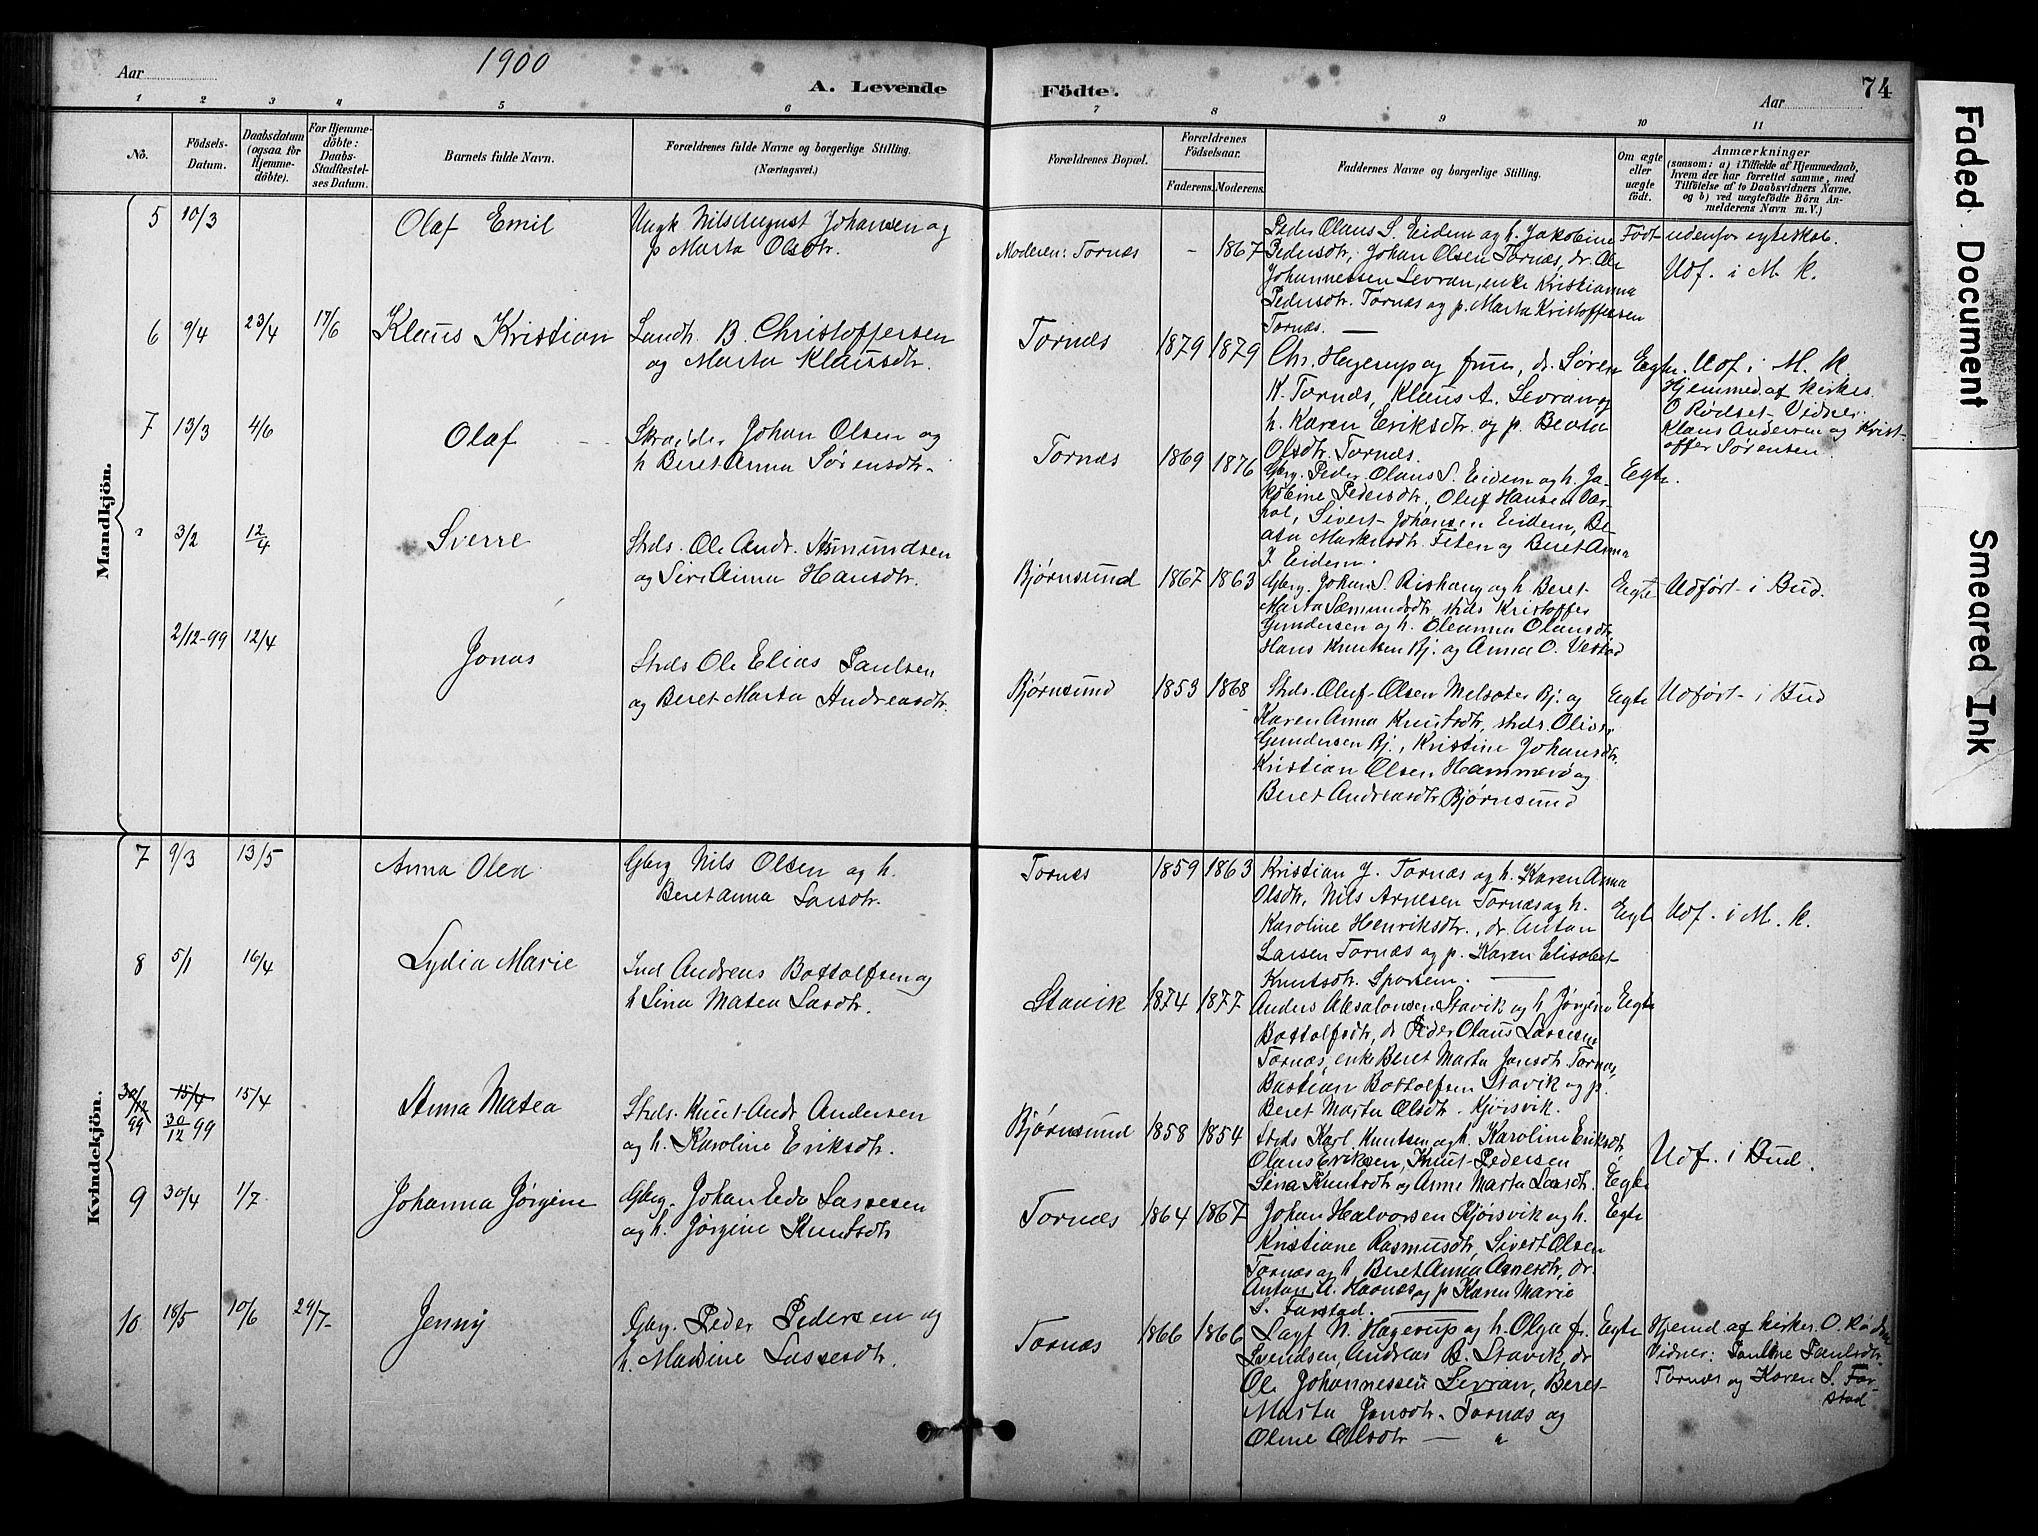 Aar 1900
A. Levende Födte.
Aar 74
1 2 3 4 5 6 7 8 9 10 11
No. Födsels-Datum. Daabsdatum (ogsaa for Hjemmedöbte). For Hjemmedöbte: Daabs-Stadfæstelses Datum. Barnets fulde Navn. Forældrenes fulde Navne og borgerlige Stilling. (Næringsvei.)
Forældrenes Bopæl. Forældrenes Födselsaar. Faderens. Moderens. Faddernes Navne og borgerlige Stilling. Om ægte eller uægte födt. Anmærkninger (saasom: a) i Tilfælde af Hjemmedaab, hvem der har forrettet samme, med Tilföielse af to Daabsvidners Navne, og b) ved uægtefödte Börn Anmelderens Navn m. V.)
Mandkjön.
5 10/3 Olaf Emil
Ungk Nils August Johansen og
p Marta Olsdtr.
Moderen: Tornes - 1867
Peder Olaus S. Eidem og h. Jakobine
Pedersdtr, Johan Olsen Tornæs, dr. Ole
Johannessen Levran, enke Kristianna
Pedersdtr. Tornæs og p. Marta Kristoffersen
Tornæs.
Født udenfor egteskab.
Udf. i M. K.
6 9/4 23/4 17/6 Klaus Kristian
Landh. B. Christoffersen
og Marta Klausdtr.
Tornæs 1879 1879
Chr. Hagerup og frue, dr. Søren
K. Tornæs, Klaus A. Levran og
h. Karen Eriksdtr. og p. Beata
Olsdtr. Tornæs.
Egte. Udf. i M. K.
Hjemmed. af kirkes.
O Rødset Vidner:
Klaus Andersen og Krist-
offer Sørensen.
7 13/3 4/6 Olaf
Skrædder Johan Olsen og
h Beret Anna Sørensdtr.
Tornæs 1869 1876
Gbrg. Peder Olaus S. Eidem og h. Ja-
kobine Pedersdtr, Oluf Hansen Var-
hol, Sivert Johansen Eidem, Be-
ata Martensdtr. Eiten og Beret Anna
J. Eidem.
Egte.
" 3/2 12/4 Sverre
Strds. Ole Andr. Asmundsen
og Siri Anna Hansdtr.
Bjørnsund 1867 1863
Gbrg. Johan S. Rishaug og h Beret
Marta Sæmundsdtr, strds Kristoffer
Gundersen og h. Oleanna Olausdtr,
Hans Knutsen Bj. og Anna O. Vestad
Egte Udført i Bud.
2/12-99 12/4 Jonas
Strds Ole Elias Paulsen
og Beret Marta Andreasdtr.
Bjørnsund 1853 1868
Strds. Oluf Olsen Melsæter Bj. og
Karen Anna Knutsdtr, strds. Oliver
Gundersen Bj., Kristine Johansdtr.
Kristian Olsen Hammerø og
Beret Andreasdtr. Bjørnsund
Egte Udført i Bud
Kvindekjön.
7 9/3 13/5 Anna Olea
Gbrg Nils Olsen og h.
Beret anna Larsdtr.
Tornes 1859 1863
Kristian J. Tornæs og h. Karen Anna
Olsdtr, Nils Arnesen Tornæs og h.
Karoline Henriksdtr., dr. Anton
Larsen Tornæs og p. Karen Elisabet
Knutsdtr. Sporsem.
Egte Udf. i M. K.
8 5/1 16/4 Lydia Marie
Ind Andreas Bottolfsen og
h Lina Matea Larsdtr.
Stavik 1874 1877
Anders Absalonsen Stavik og h Jørgine
Bottolfsdtr, dr Peder Olaus Larsen
Tornæs, enke Beret Marta Jansdtr. Tornæs,
Bastian Bottolfsen Stavik og p.
Beret Marta Olsdtr. Kjørsvik.
Egte
30/12 99 15/4 30/12 99 15/4 Anna Matea
Strds. Knut Andr. Andersen
og h. Karoline Eriksdtr.
Bjørnsund 1858 1854
Strds Karl Knutsen og h. Karoline Eriksdtr,
Olaus Eriksen, Knut Pedersen
Sina Knutsdtr og Anne Marta Larsdtr.
Egte Udf. i Bud.
9 30/4 1/7 Johanna Jørgine
Gbrg. Johan Edv Lassesen
og h. Jørgine Knutsdtr
Tornæs 1864 1867
Johan Halvorsen Kjørsvik og h.
Kristiane Rasmusdtr, Sivert Olsen
Tornæs og h Beret Anna Arnesdtr, dr.
Anton A. Hornæs og p Karen Marie
S. Farstad.
Egte
10 18/5 10/6 29/7 Jenny
Gbrg. Peder Pedersen og
h. Madsine Lassesdtr.
Tornæs 1866 1866
Lagf N. Hagerup og h. Olga f.
Svendsen, Andreas B. Stavik, dr
Ole Johannessen Levran, Beret
Marta Jansdtr. Tornæs og
Oline Olsdtr — "
Egte Hjemd. af kirkes. O. Rødset
Vidner: Pauline Paulsdtr.
Tornæs og Karen S. Far-
stad
Faded Document
Smeared Ink